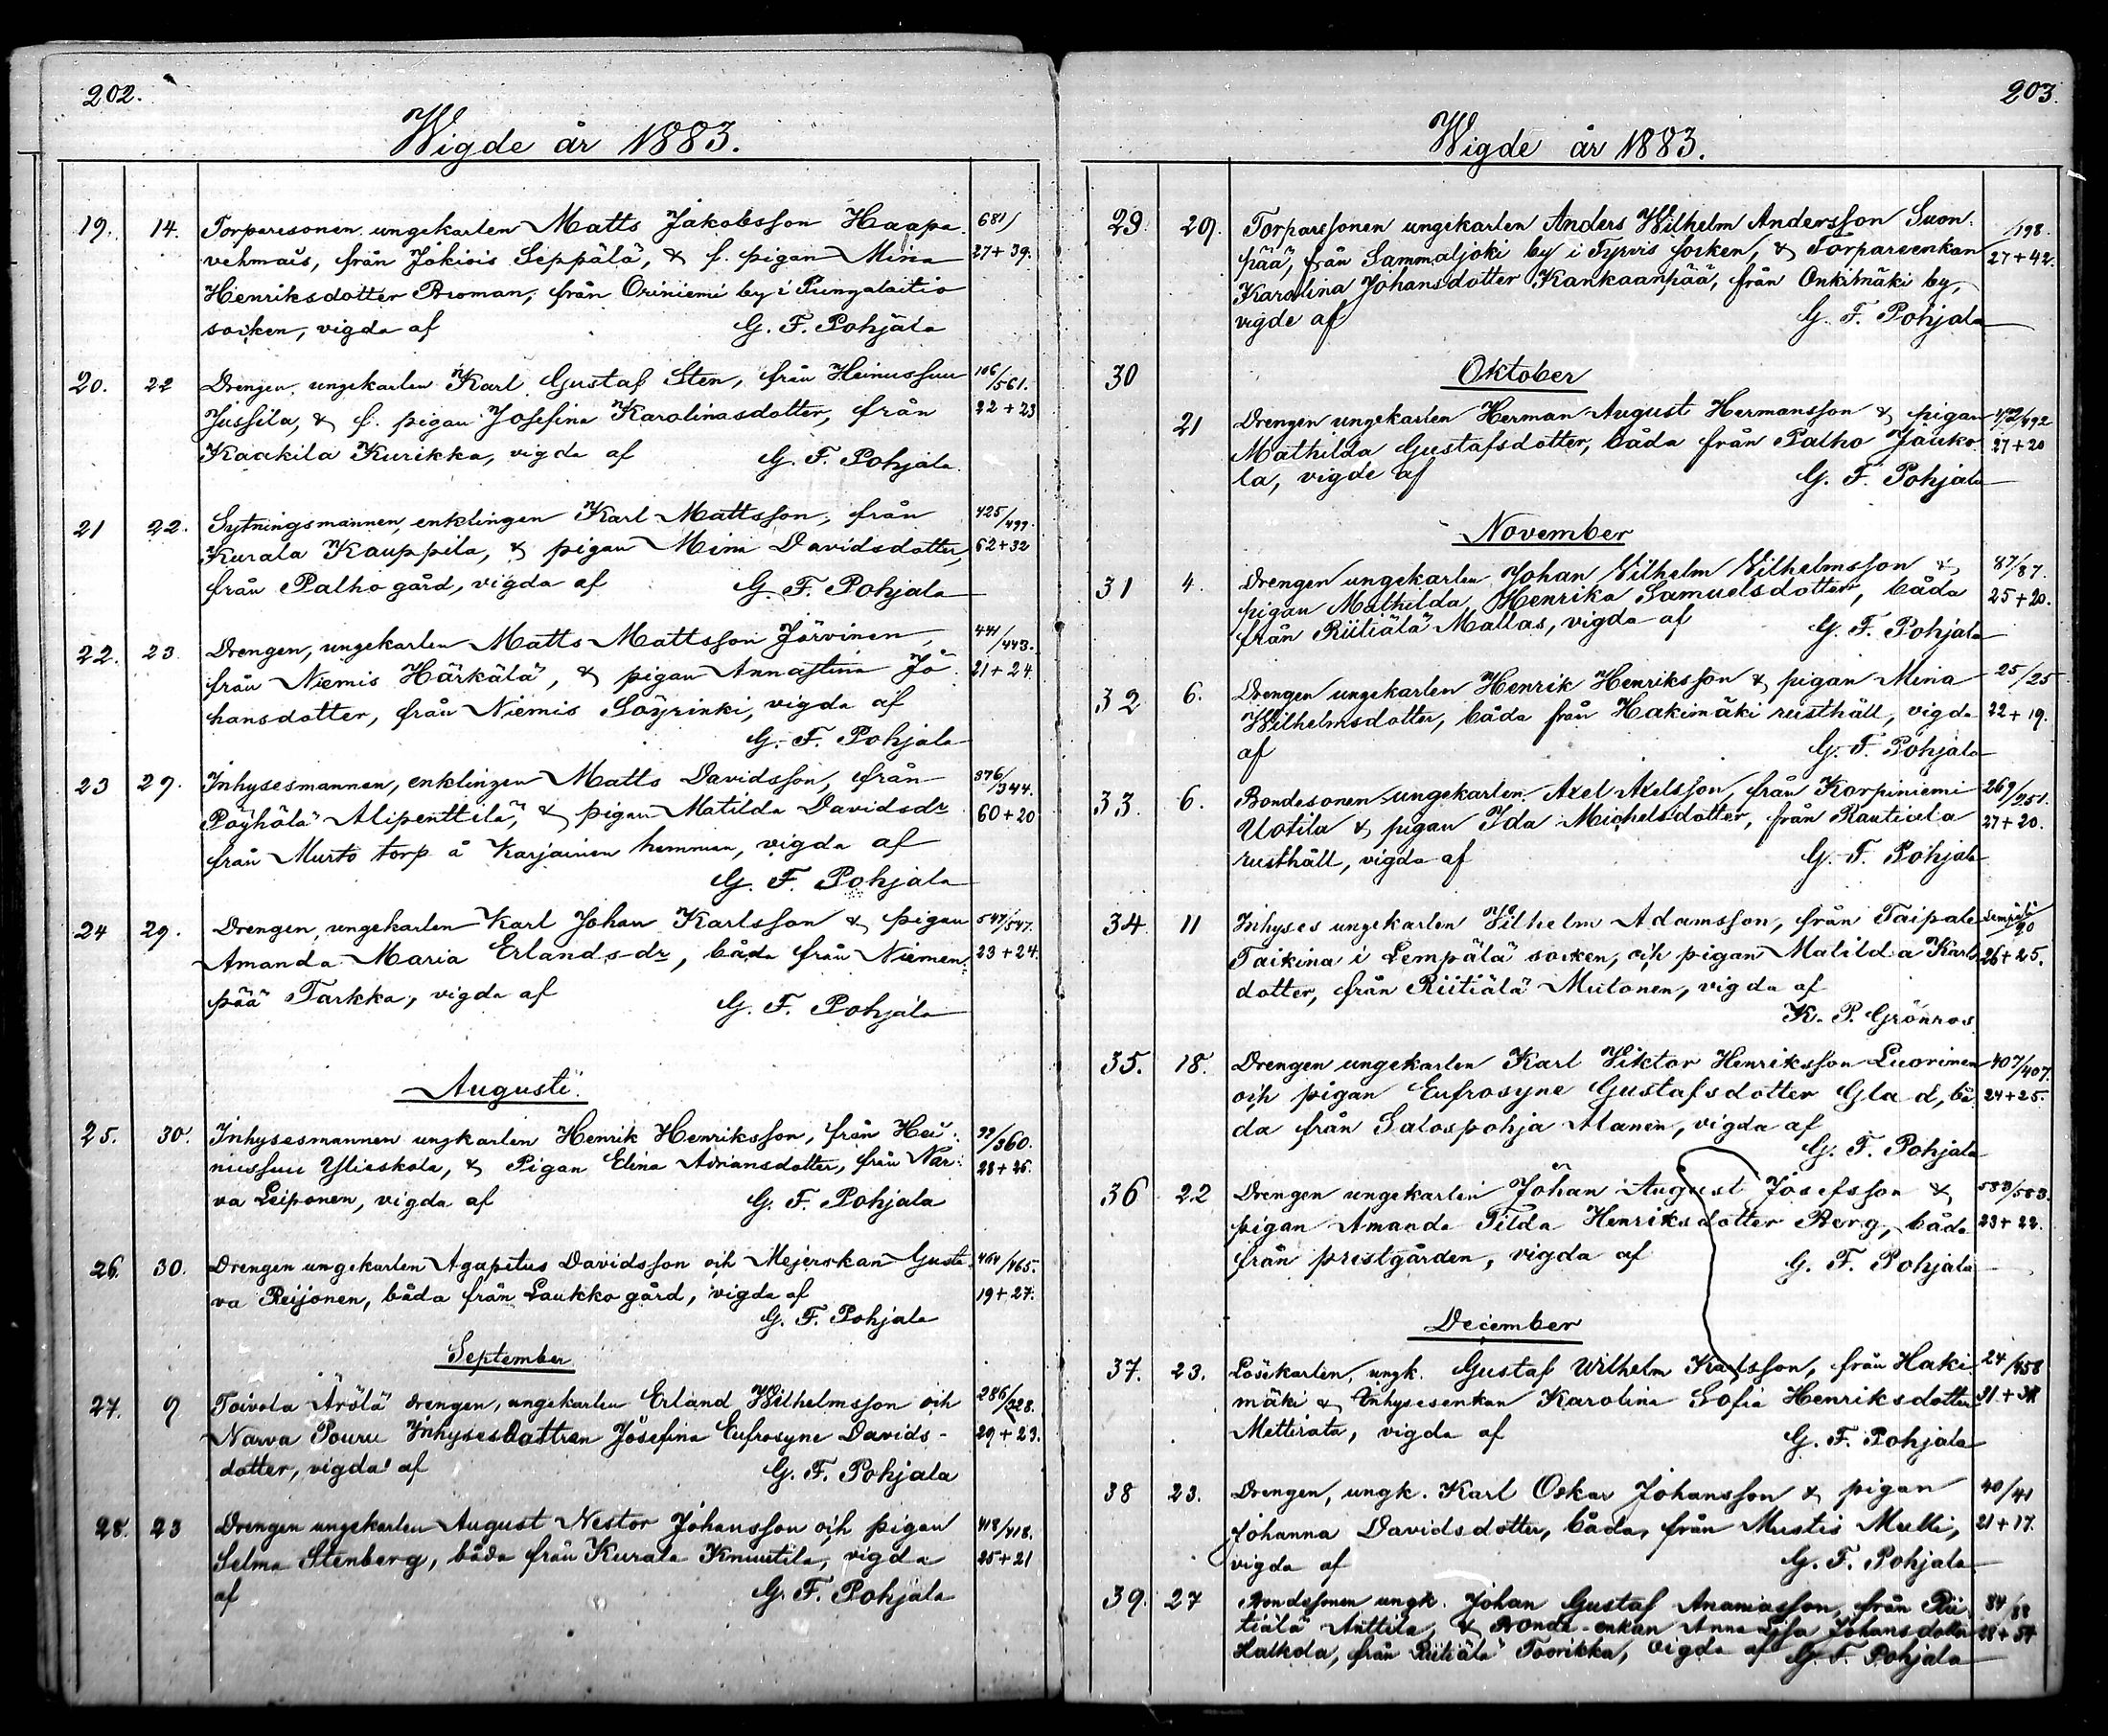 202.
Wigde år 1883.
19. 14. Torparesonen ungekarlen Matts Jakobsson Haapa- 681/
vehmais, från Jokisis Seppälä, & f. pigan Mina 27+39.
Henriksdotter Broman, från Oriniemi by i Pungalaitio
socken, vigda af G. F. Pohjala
20. 22 Drengen ungekarlen Karl Gustaf Sten, från Heinussuu 106/561.
Jussila, & f. pigan Josefina Karolinasdotter, från 22+23
Kaakila Kurikka, vigda af G. F. Pohjala.
21 22. Sytningsmannen, enklingen Karl Mattsson, från 425/499.
Kurala Kauppila, & pigan Mina Davidsdotter, 62+32
från Palho gård, vigda af G. F. Pohjala
22. 23 Drengen, ungekarlen Matts Mattsson Järvinen, 441/443.
från Niemis Härkälä, & pigan Annastina Jo- 21+24.
hansdotter, från Niemis Söyrinki, vigda af
G. F. Pohjala
23 29. Inhysesmannen, enklingen Matts Davidsson, från 376/344.
Pöyhölä Alipenttilä, & pigan Matilda Davidsdr 60+20
från Murto torp å Karjainen hemman, vigda af
G. F. Pohjala
24 29. Drengen, ungekarlen Karl Johan Karlsson & pigan 547/547.
Amanda Maria Erlands-dr, båda från Niemen- 23+24.
pää Tarkka, vigda af G. F. Pohjala
Augusti.
25. 30. Inhysesmannen ungkarlen Henrik Henriksson, från Hei- 99/360.
nussuu Ylieskola, & Pigan Elina Adriansdotter, från Nar- 28+26.
va Leiponen, vigda af G. F. Pohjala
26. 30. Drengen ungekarlen Agapetus Davidsson och Mejerskan Gusta- 464/465.
va Reijonen, båda från Laukko gård, vigda af 19+27.
G. F. Pohjala
September
27. 9 Toivola Ärölä drengen, ungekarlen Erland Wilhelmsson och 286/328.
Narva Pouru Inhysesdottren Josefina Eufrosyne Davids- 29+23.
dotter, vigda af G. F. Pohjala
28. 23 Drengen ungekarlen August Nestor Johansson och pigan 418/418.
Selma Stenberg, båda från Kurala Knuutila, vigda 25+21
af G. F. Pohjala
203.
Wigde år 1883.
29. 29. Torparesonen ungekarlen Anders Wilhelm Andersson Suon- /198.
pää, från Sammaljoki by i Tyrvis socken, & Torpareenkan 27+42.
Karolina Johansdotter Kankaanpää, från Onkimäki by,
vigde af G. F. Pohjala
30 Oktober
21 Drengen ungekarlen Herman August Hermansson & pigan 472/492
Mathilda Gustafsdotter, båda från Palho Jauko- 27+20
la, vigde af G. F. Pohjala
November
31 4. Drengen ungekarlen Johan Vilhelm Vilhelmsson & 87/87.
pigan Mathilda Henrika Samuelsdotter, båda 25+20.
från Riitiälä Mallas, vigda af G. F. Pohjala
32 6. Drengen ungekarlen Henrik Henriksson & pigan Mina 25/25
Wilhelmsdotter, båda från Hakimäki rusthåll, vigda 22+19.
af G. F. Pohjala
33. 6. Bondesonen ungekarlen Axel Axelsson, från Korpiniemi 269/251.
Uotila & pigan Ida Michelsdotter, från Rautiala 27+20.
rusthåll, vigda af G. F. Pohjala
34. 11 Inhyses ungekarlen Vilhelm Adamsson, från Taipale Lempälä/90
Taikina i Lempälä socken, och pigan Matilda Karls- 26+25.
dotter, från Riitiälä Mutonen, vigda af
K. P. Grönros
35. 18. Drengen ungekarlen Karl Viktor Henriksson Luorinen 407/407.
och pigan Eufrosyne Gustafsdotter Glad, bå- 24+25.
da från Salospohja Alanen, vigda af
G. F. Pohjala
36 22 Drengen ungekarlen Johan August Josefsson & 583/583.
pigan Amanda Tilda Henriksdotter Berg, båda 23+22.
från prestgården, vigda af G. F. Pohjala
December
37. 23. Lösekarlen, ungk. Gustaf Wilhelm Karlsson, från Haki- 24/458
mäki & Inhysesenkan Karolina Sofia Henriksdotter 31+31
Metterata, vigda af G. F. Pohjala
38 23. Drengen, ungk. Karl Oskar Johansson & pigan 40/41
Johanna Davidsdotter, båda, från Mustis Mulli, 21+17.
vigda af G. F. Pohjala
39. 27 Bondesonen ungk. Johan Gustaf Ananiasson, från Rii- 84/88
tiälä Anttila, & Bonde-enkan Anna Lisa Johansdotter 28+37
Halkola, från Riitiälä Toorikka, vigda af G. F. Pohjala